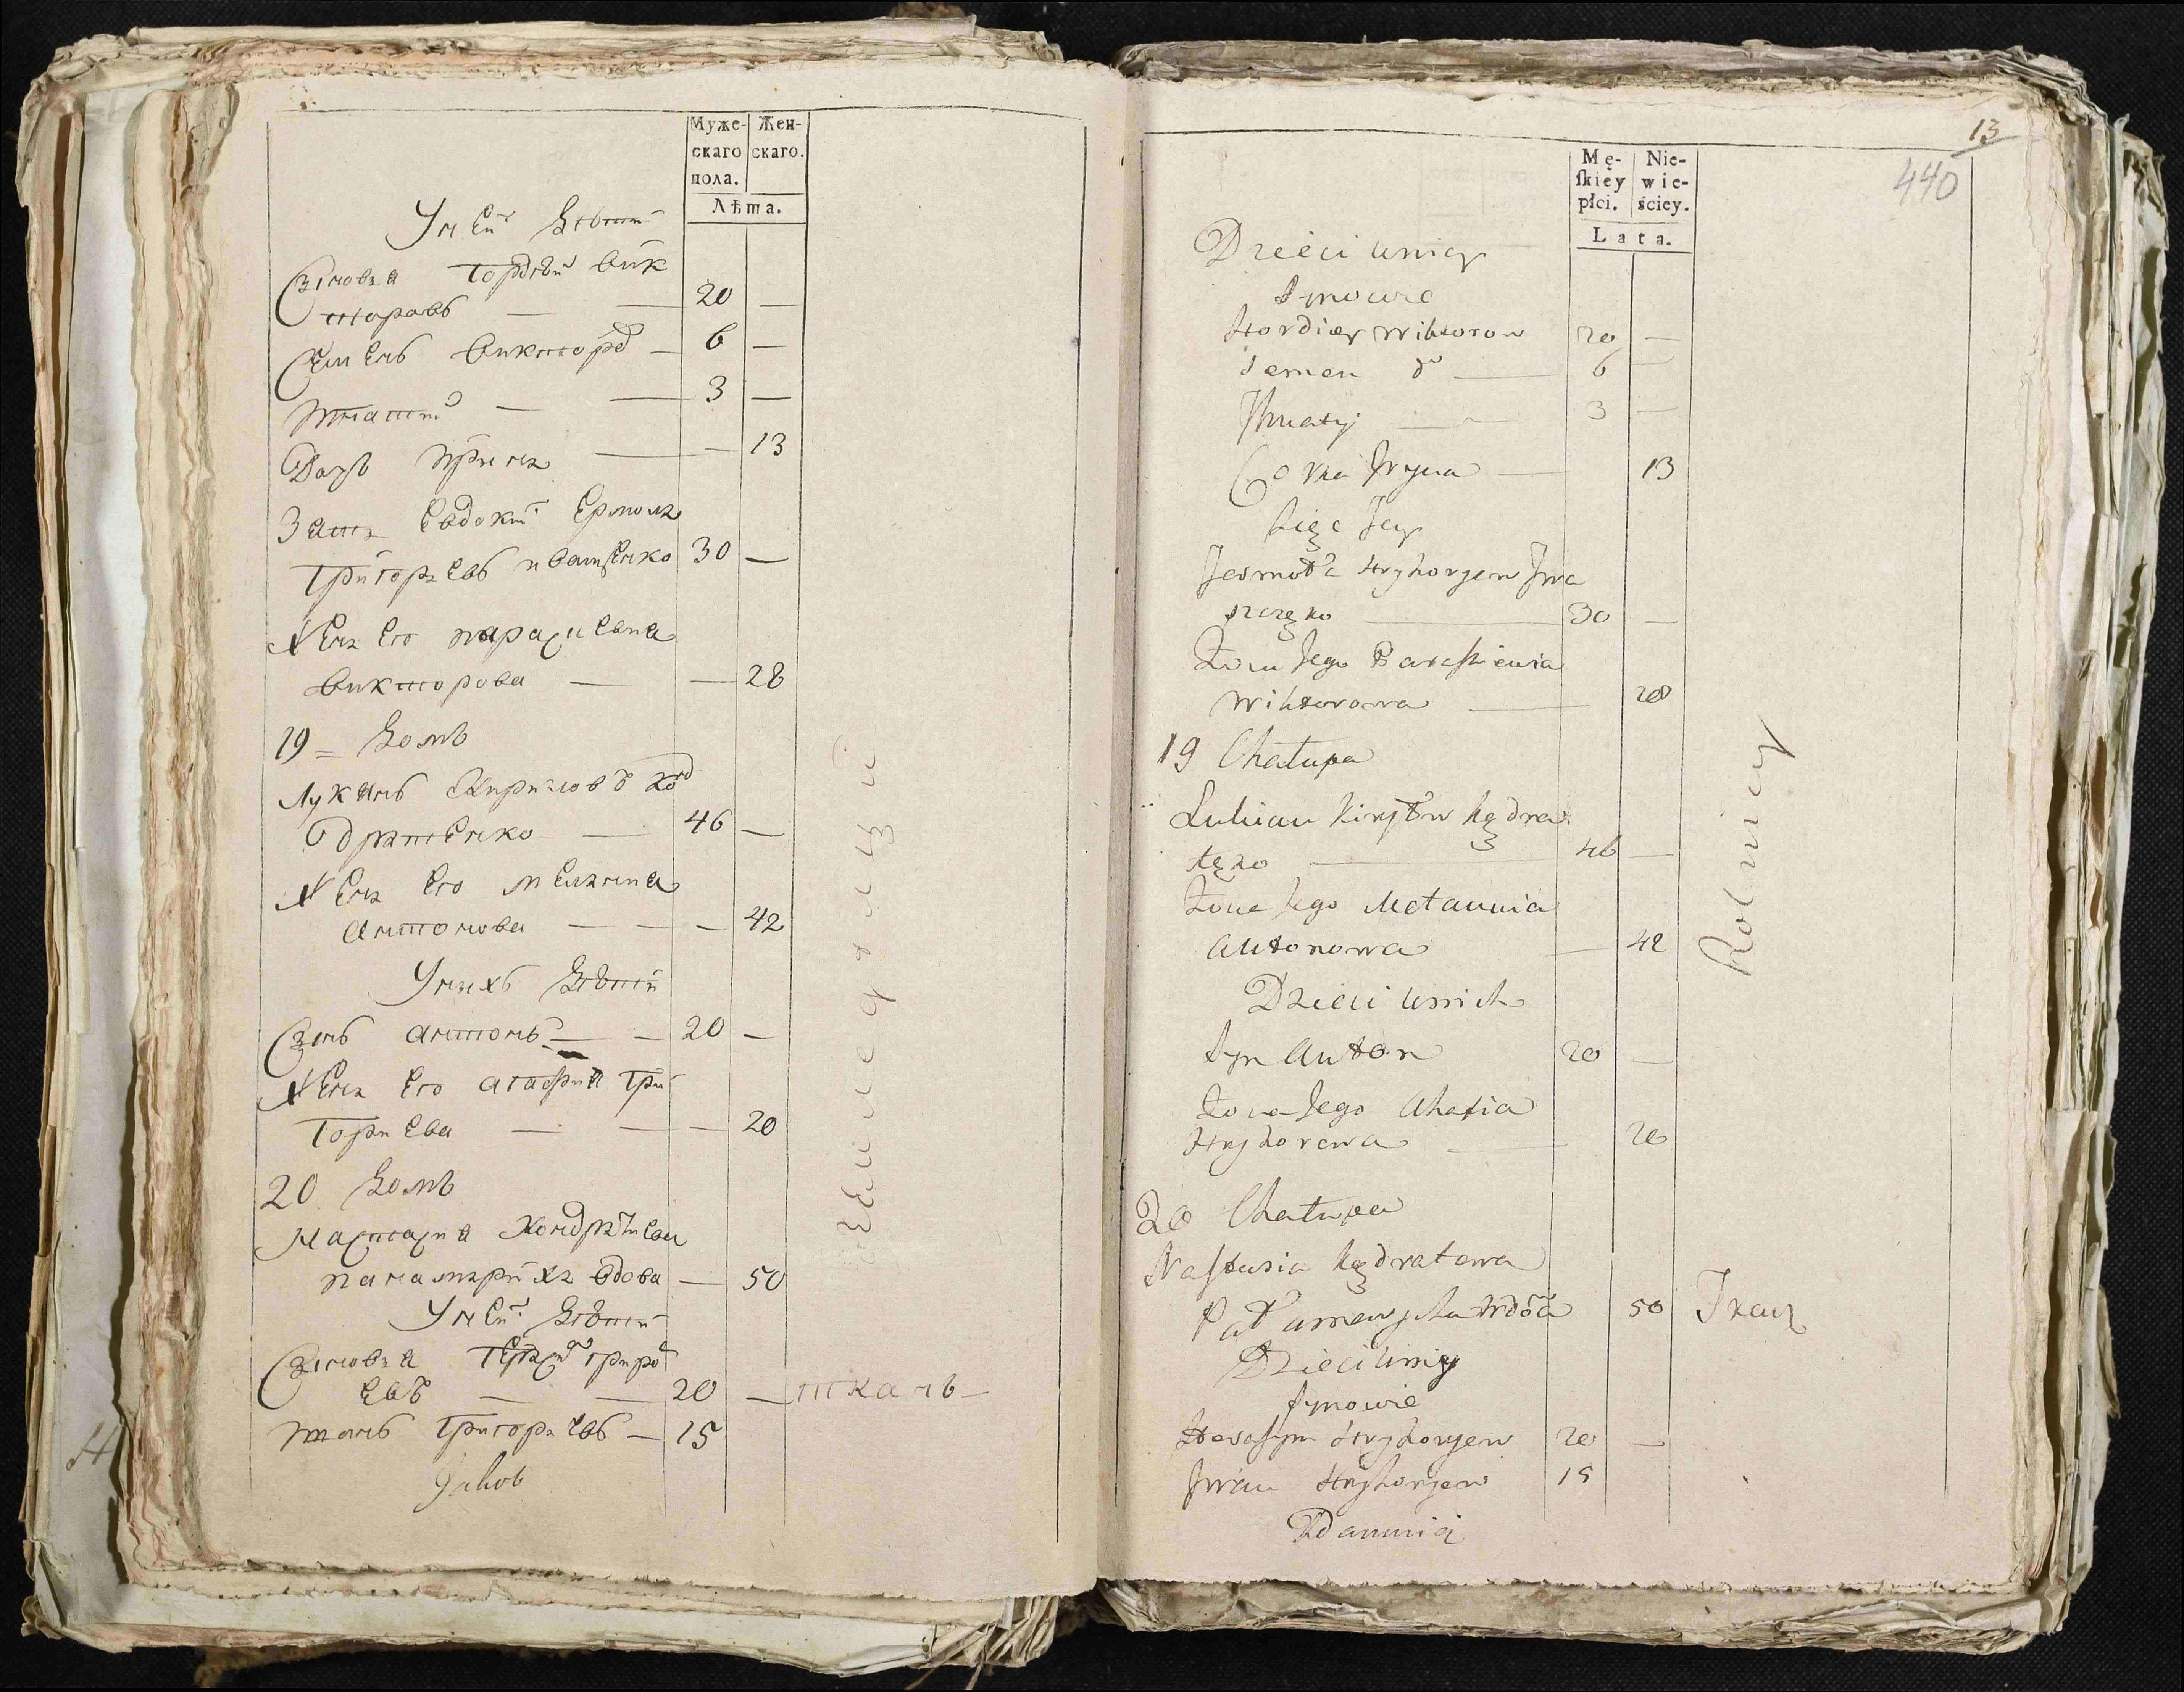 Муже-
скаго
пола.
Жен-
скаго.
Лѣта.
У ней дѣтей
Сыновья Гордѣй Вик
торовъ — — 20 —
Семенъ Викторо — 6 —
Игнатий — — 3 —
Дочь Ирина — — 13
Зять Евдоким Ермола
Григорьевъ Иващенко 30 —
Жена Его Параскевиа
Викторова — — 28
19 = домъ
Лукянъ Кириловъ Ко
дратенко — 46 —
Жена Его Меланиа
Антонова — — — 42
У нихъ дѣтей
Сынъ Антонъ — — 20 —
Жена Его Агафия Гри
горьева — — — 20
Земледелцы
20 домъ
Настасия Кондратиева
Панамариха вдова — 50
У ней дѣтей
Сыновья Герасим Григорь
евъ — — 20 — ткачъ —
Иванъ Григорьевъ — 15
Jakob
13
440
Mę-
ſkiey
płci.
Nie-
wie-
ściey.
Lata.
Dzieci u niey
Synowie
Hordiey Wiktorow 20 —
Semen do — 6 —
Ihnatij — 3 —
Corka Iryna — 13
Zięc Jey
Jermoła Hryhoryew Iwa
szczęko — 30 —
Żona Jego Paraskiewia
Wiktorowa — 28
19 Chałupa
Lukian Kiryłow Kędra
tęko — 46 —
Żona Jego Mełannia
Antonowa — 42
Dzieci u nich
Syn Anton 20 —
Żona Jego Ahafia
Hryhorewa — 20
Rolnicy
20 Chałupa
Nastasia Kędratowa
Pałamarycha Wdoa 50 Tkacz
Dzieci u niey
Synowie
Herasym Hryhoryew 20 —
Iwan Hryhoryew 15
Zdannią